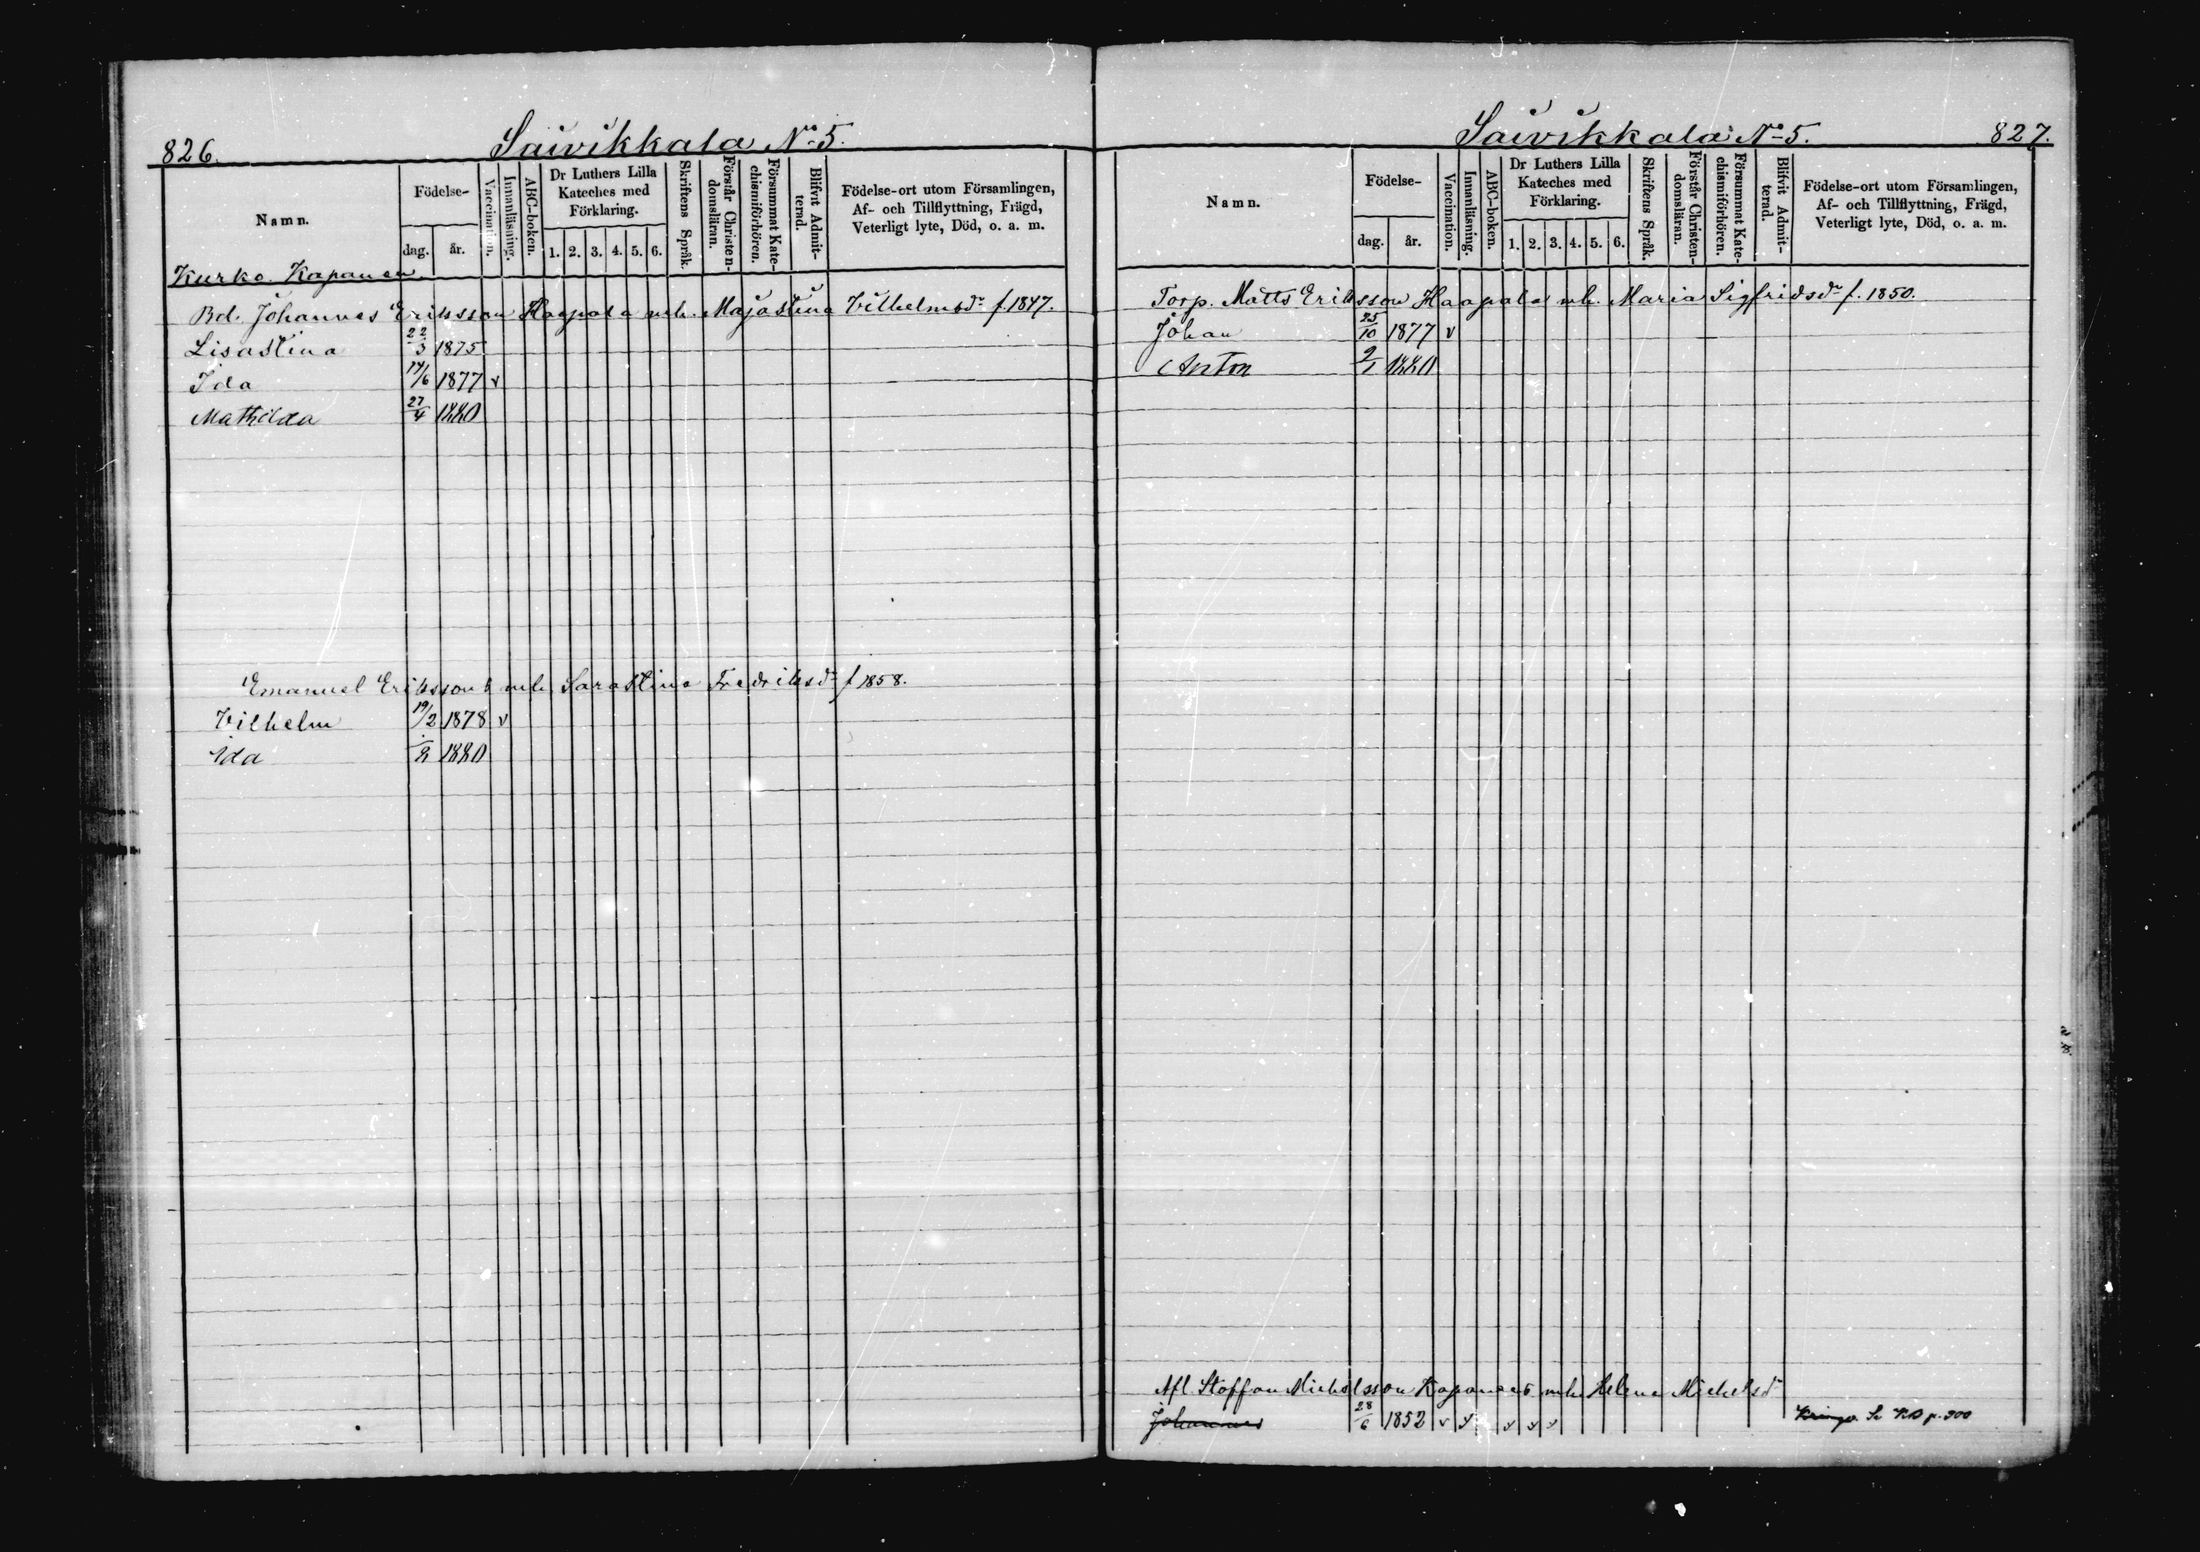 826.
Saivikkala No 5.
Namn.
Födelse-
dag.
år.
Vaccination.
Innanläsning.
ABC-boken.
Dr Luthers Lilla
Kateches med
Förklaring.
1. 2. 3. 4. 5. 6.
Skriftens Språk.
Förstår Christen-
domsläran.
Försummat Kate-
chismiförhören.
Blifvit Admit-
terad.
Födelse-ort utom Församlingen,
Af- och Tillflyttning, Frägd,
Veterligt lyte, Död, o. a. m.
Kurko. Kapanen
Bd. Johannes Eriksson Haapala mh. Majastina Vilhelmsdr f. 1847.
Lisastina 22/3 1875
Ida 14/6 1877 v
Mathilda 27/4 1880
Emanuel Eriksson mh. Sarastina Fredriksdr f 1858.
Vilhelm 19/2 1878 v
Ida 1880
Saivikkala No 5.
827.
Namn.
Födelse-
dag.
år.
Vaccination.
Innanläsning.
ABC-boken.
Dr Luthers Lilla
Kateches med
Förklaring.
1. 2. 3. 4. 5. 6.
Skriftens Språk.
Förstår Christen-
domsläran.
Försummat Kate-
chismiförhören.
Blifvit Admit-
terad.
Födelse-ort utom Församlingen,
Af- och Tillflyttning, Frägd,
Veterligt lyte, Död, o. a. m.
Torp. Matts Eriksson Haapala mh. Maria Sigfridsdr f. 1850.
Johan 25/10 1877 v
Anton 2/1 1880
Afl. Staffan Michelsson Kapanens mh. Helena Michelsdr
Johannes 28/6 1852 v v v v v p. 300